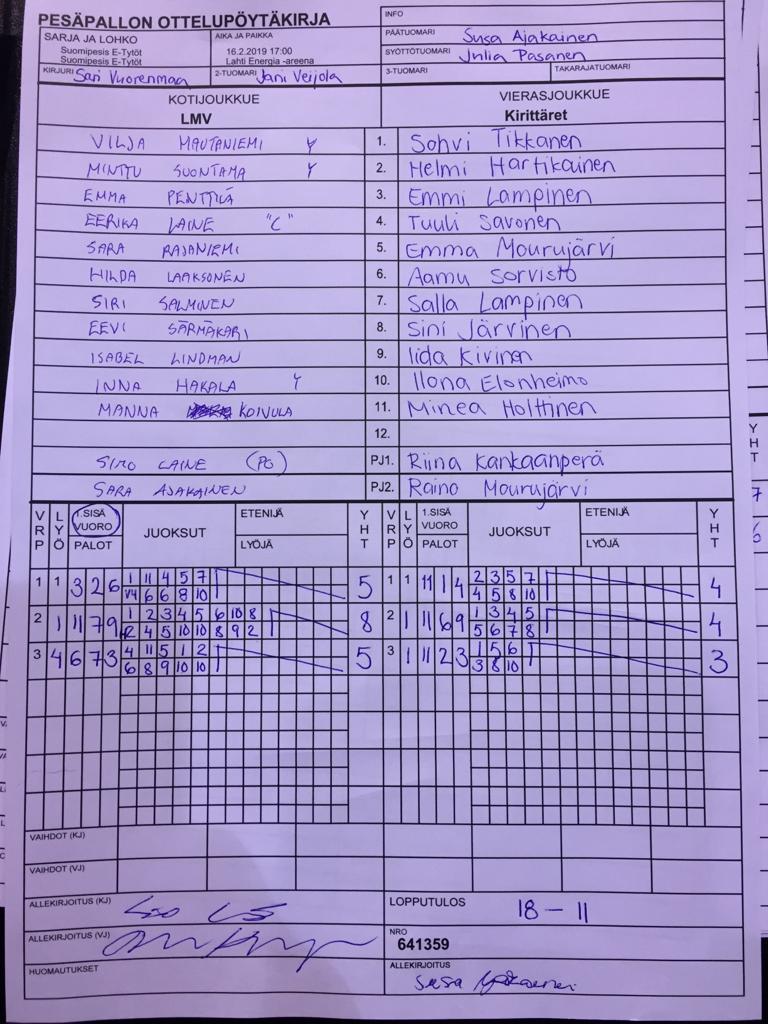 PESÄPALLON OTTELUPÖYTÄKIRJA
INFO
SARJA JA LOHKO
Suomipesis E-Tytöt
Suomipesis E-Tytöt
AIKA JA PAIKKA
16.2.2019 17:00
Lahti Energia -areena
PÄÄTUOMARI Susa Ajakainen
SYÖTTÖTUOMARI Julia Pasanen
KIRJURI Sari Vuorenmaa
2-TUOMARI Jani Veijola
3-TUOMARI
TAKARAJATUOMARI
KOTIJOUKKUE
LMV
VIERASJOUKKUE
Kirittäret
VILJA MAUTANIEMI Y 1. Sohvi Tikkanen
MINTTU SUONTAMA Y 2. Helmi Hartikainen
EMMA PENTTILÄ 3. Emmi Lampinen
EERIKA LAINE "C" 4. Tuuli Savonen
SARA RAJANIEMI 5. Emma Mourujärvi
HILDA LAAKSONEN 6. Aamu Sorvisto
SIRI SALMINEN 7. Salla Lampinen
EEVI SÄRMÄKARI 8. Sini Järvinen
ISABEL LINDMAN 9. Iida Kivinen
INNA HAKALA Y 10. Ilona Elonheimo
MANNA KOIVULA 11. Minea Holttinen
12.
SIMO LAINE (PG) PJ1. Riina Kankaanperä
SARA AJAKAINEN PJ2. Raino Mourujärvi
VRP LYÖ 1.SISÄ VUORO PALOT JUOKSUT ETENIJÄ LYÖJÄ YHT VRP LYÖ 1.SISÄ VUORO PALOT JUOKSUT ETENIJÄ LYÖJÄ YHT
1 1 3 2 6 1 11 4 5 7 5 1 1 11 1 4 2 3 5 7 4
V4 6 6 8 10 4 5 8 10
2 1 11 7 9 1 2 3 4 5 6 10 8 8 2 1 11 6 9 1 3 4 5 4
R 4 5 10 10 8 9 2 5 6 7 8
3 4 6 7 3 4 11 5 1 2 5 3 1 11 2 3 1 5 6 3
6 8 9 10 10 3 8 10
VAIHDOT (KJ)
VAIHDOT (VJ)
ALLEKIRJOITUS (KJ)
LOPPUTULOS 18 - 11
ALLEKIRJOITUS (VJ)
NRO
641359
HUOMAUTUKSET
ALLEKIRJOITUS
Susa Ajakainen